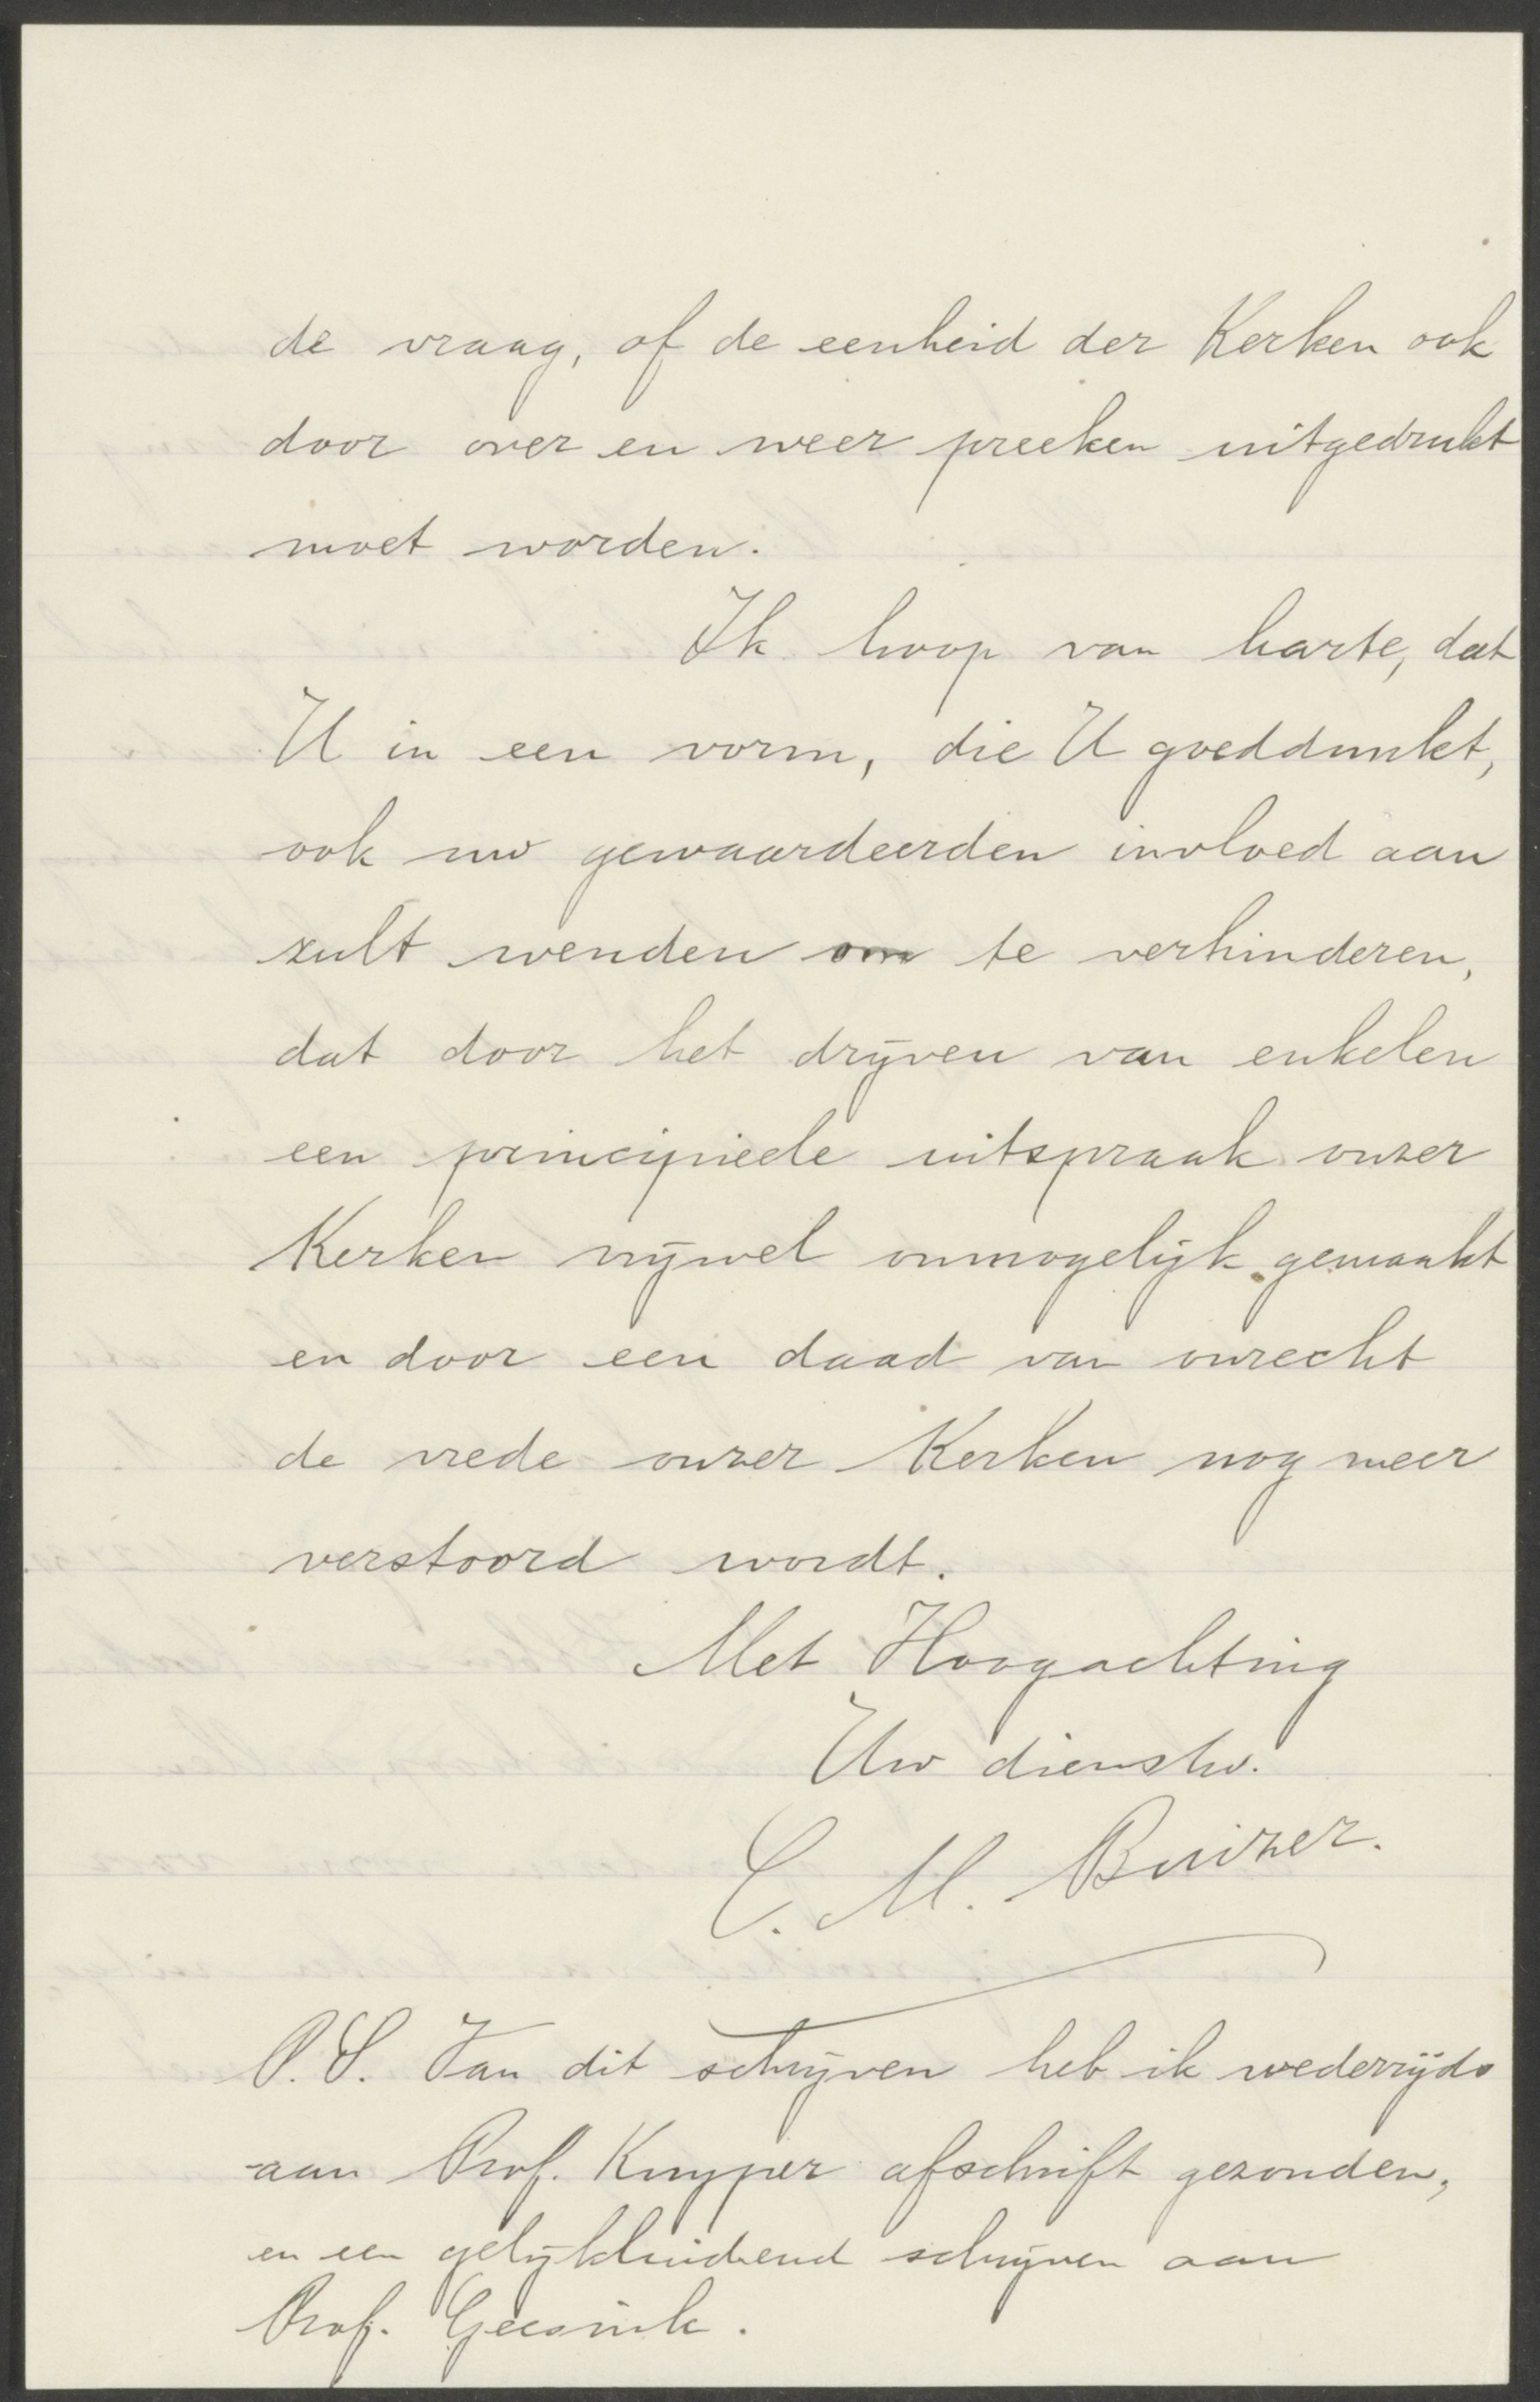 de vraag, of de eenheid der Kerken ook
door over en weer preeken uitgedrukt
moet worden.
Ik hoop van harte, dat
U in een vorm, die U goeddunkt,
ook uw gewaardeerden invloed aan
zult wenden om te verhinderen,
dat door het drijven van enkelen
een principieele uitspraak onzer
Kerken vrijwel onmogelijk gemaakt
en door een daad van onrecht
de vrede onzer Kerken nog meer
verstoord wordt.
Met Hoogachting
Uw dienstw.
C. M. Buizer.
P.S. Van dit schrijven heb ik wederzijds
aan Prof. Kuyper afschrift gezonden,
en een gelijkluidend schrijven aan
Prof. Geesink.